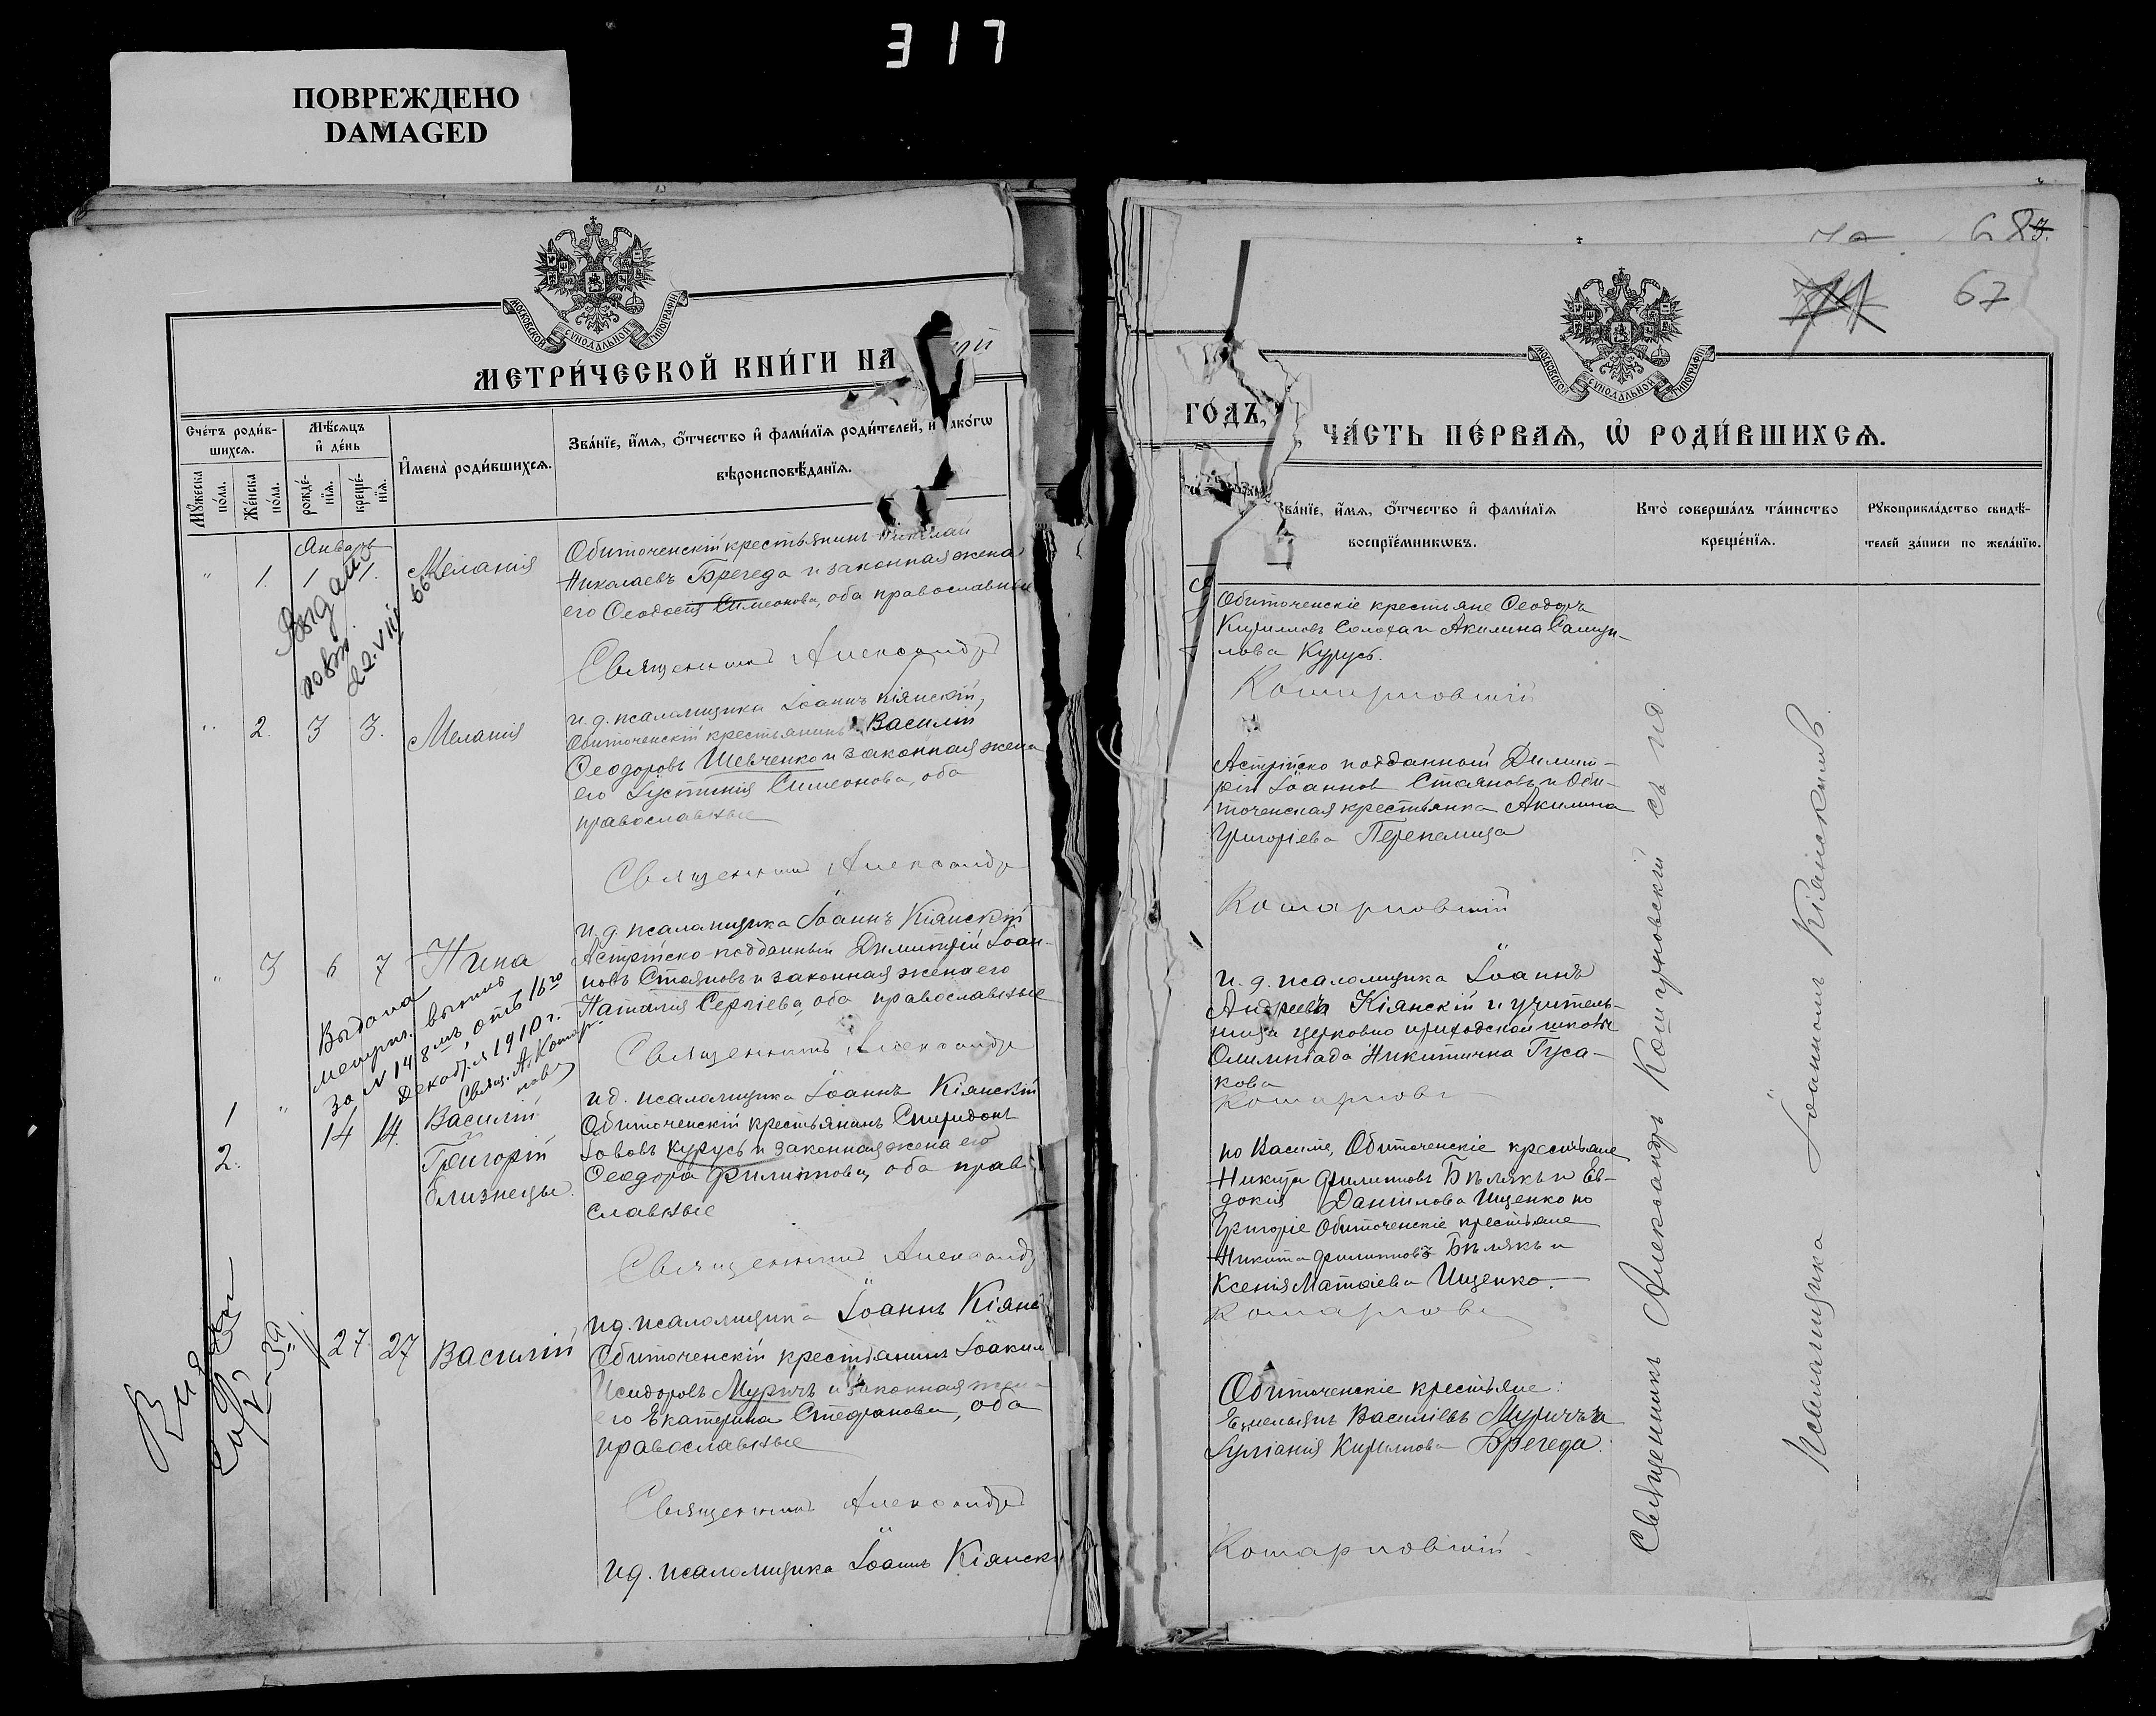 317
ПОВРЕЖДЕНО
DAMAGED
МОСКОВСКОЙ СѴНОДАЛЬНОЙ ТИПОГРАФІИ
МЕТРИ́ЧЕСКОЙ КНИ́ГИ НА
Сче́тъ роди́в-
шихсѧ.
Мꙋ́жеска
по́ла.
Же́нска
по́ла.
Мѣ́сѧцъ
и҆ де́нь
рожде́-
нїѧ.
креще́-
нїѧ.
И҆мена̀ роди́вшихсѧ.
Зва́нїе, и҆́мѧ, ѻ҆́тчество и҆ фами́лїѧ роди́телей, и҆ како́гѡ
вѣроисповѣ́данїѧ.
Январь
" 1. 1 1. Меланія
Обиточенскій крестьянинъ Николай
Николаевъ Брегеда и законная жена
его Ѳеодосія Симеонова, оба православные
Выдано
Священникъ Александръ
и. д. псаломщика Іоаннъ Кіянскій,
" 2. 3 3. Меланія
Обиточенскій крестьянинъ Василій
Ѳеодоровъ Шевченко и законная жена
его Іустинія Симеонова, оба
православные
Священникъ Александръ
и. д. псаломщика Іоаннъ Кіянскій
" 3 6 7 Нина
Австрійско-подданный Димитрій Іоан-
новъ Стояновъ и законная жена его
Наталія Сергіева, оба православные
Выдана
метрич. выпись
за № 148мъ, отъ 16го
Декабря 1910 г.
Священникъ Александръ
и д. псаломщика Іоаннъ Кіянскій
1 " 14 14. Василій
2. Григорій
близнецы.
Обиточенскій крестьянинъ Спиридонъ
Іововъ Курусь и законная жена его
Ѳеодора Филиппова, оба право
славные
Священникъ Александръ
и д. псаломщика Іоаннъ Кіянс
27 27 Василій
Обиточенскій крестьянинъ Іоаким
Исидоровъ Муричъ и законная жена
его Екатерина Стефанова, оба
православные
Священникъ Александръ
и д. псаломщика Іоаннъ Кіянск
68
67
МОСКОВСКОЙ СѴНОДАЛЬНОЙ ТИПОГРАФІИ
ГО́ДЪ, ЧА́СТЬ ПЕ́РВАѦ, Ѽ РОДИ́ВШИХСѦ.
Зва́нїе, и҆́мѧ, ѻ҆́тчество и҆ фами́лїѧ
воспрїе́мникѡвъ.
Кто̀ соверша́лъ та́инство
креще́нїѧ.
Рꙋкоприкла́дство свидѣ́-
телей за́писи по жела́нїю.
Обиточенскіе крестьяне Ѳеодоръ
Кирилловъ Солоха и Акилина Самуи-
лова Курусь.
Австрійско подданный Димит-
рій Іоанновъ Стояновъ и Оби-
точенская крестьянка Акилина
Григоріева Перепелица
и. д. псаломщика Іоаннъ
Андреевъ Кіянскій и учитель-
ница церковно приходской школы
Олимпіада Никитична Гуса-
кова
по Василіе, Обиточенскіе крестьяне
Никита Филипповъ Бѣлякъ и Ев-
докія Даніилова Ищенко по
Григоріе Обиточенскіе крестьяне
Никита Филипповъ Бѣлякъ и
Ксенія Матѳіева Ищенко.
Обиточенскіе крестьяне:
Емельянъ Василіевъ Муричъ и
Іуліанія Кириллова Брегеда.
Священникъ Александръ съ и д.
псаломщика Іоанномъ Кіянскимъ.